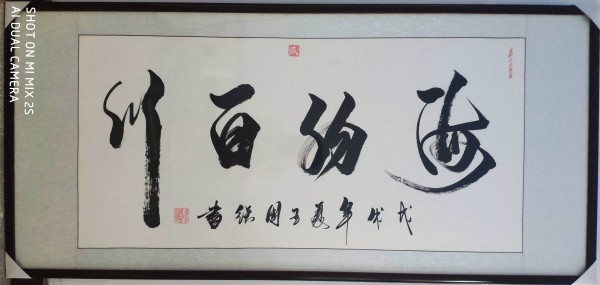 海纳百川
戊戌年夏于国强書
SHOT ON MI MIX 2S
AI DUAL CAMERA